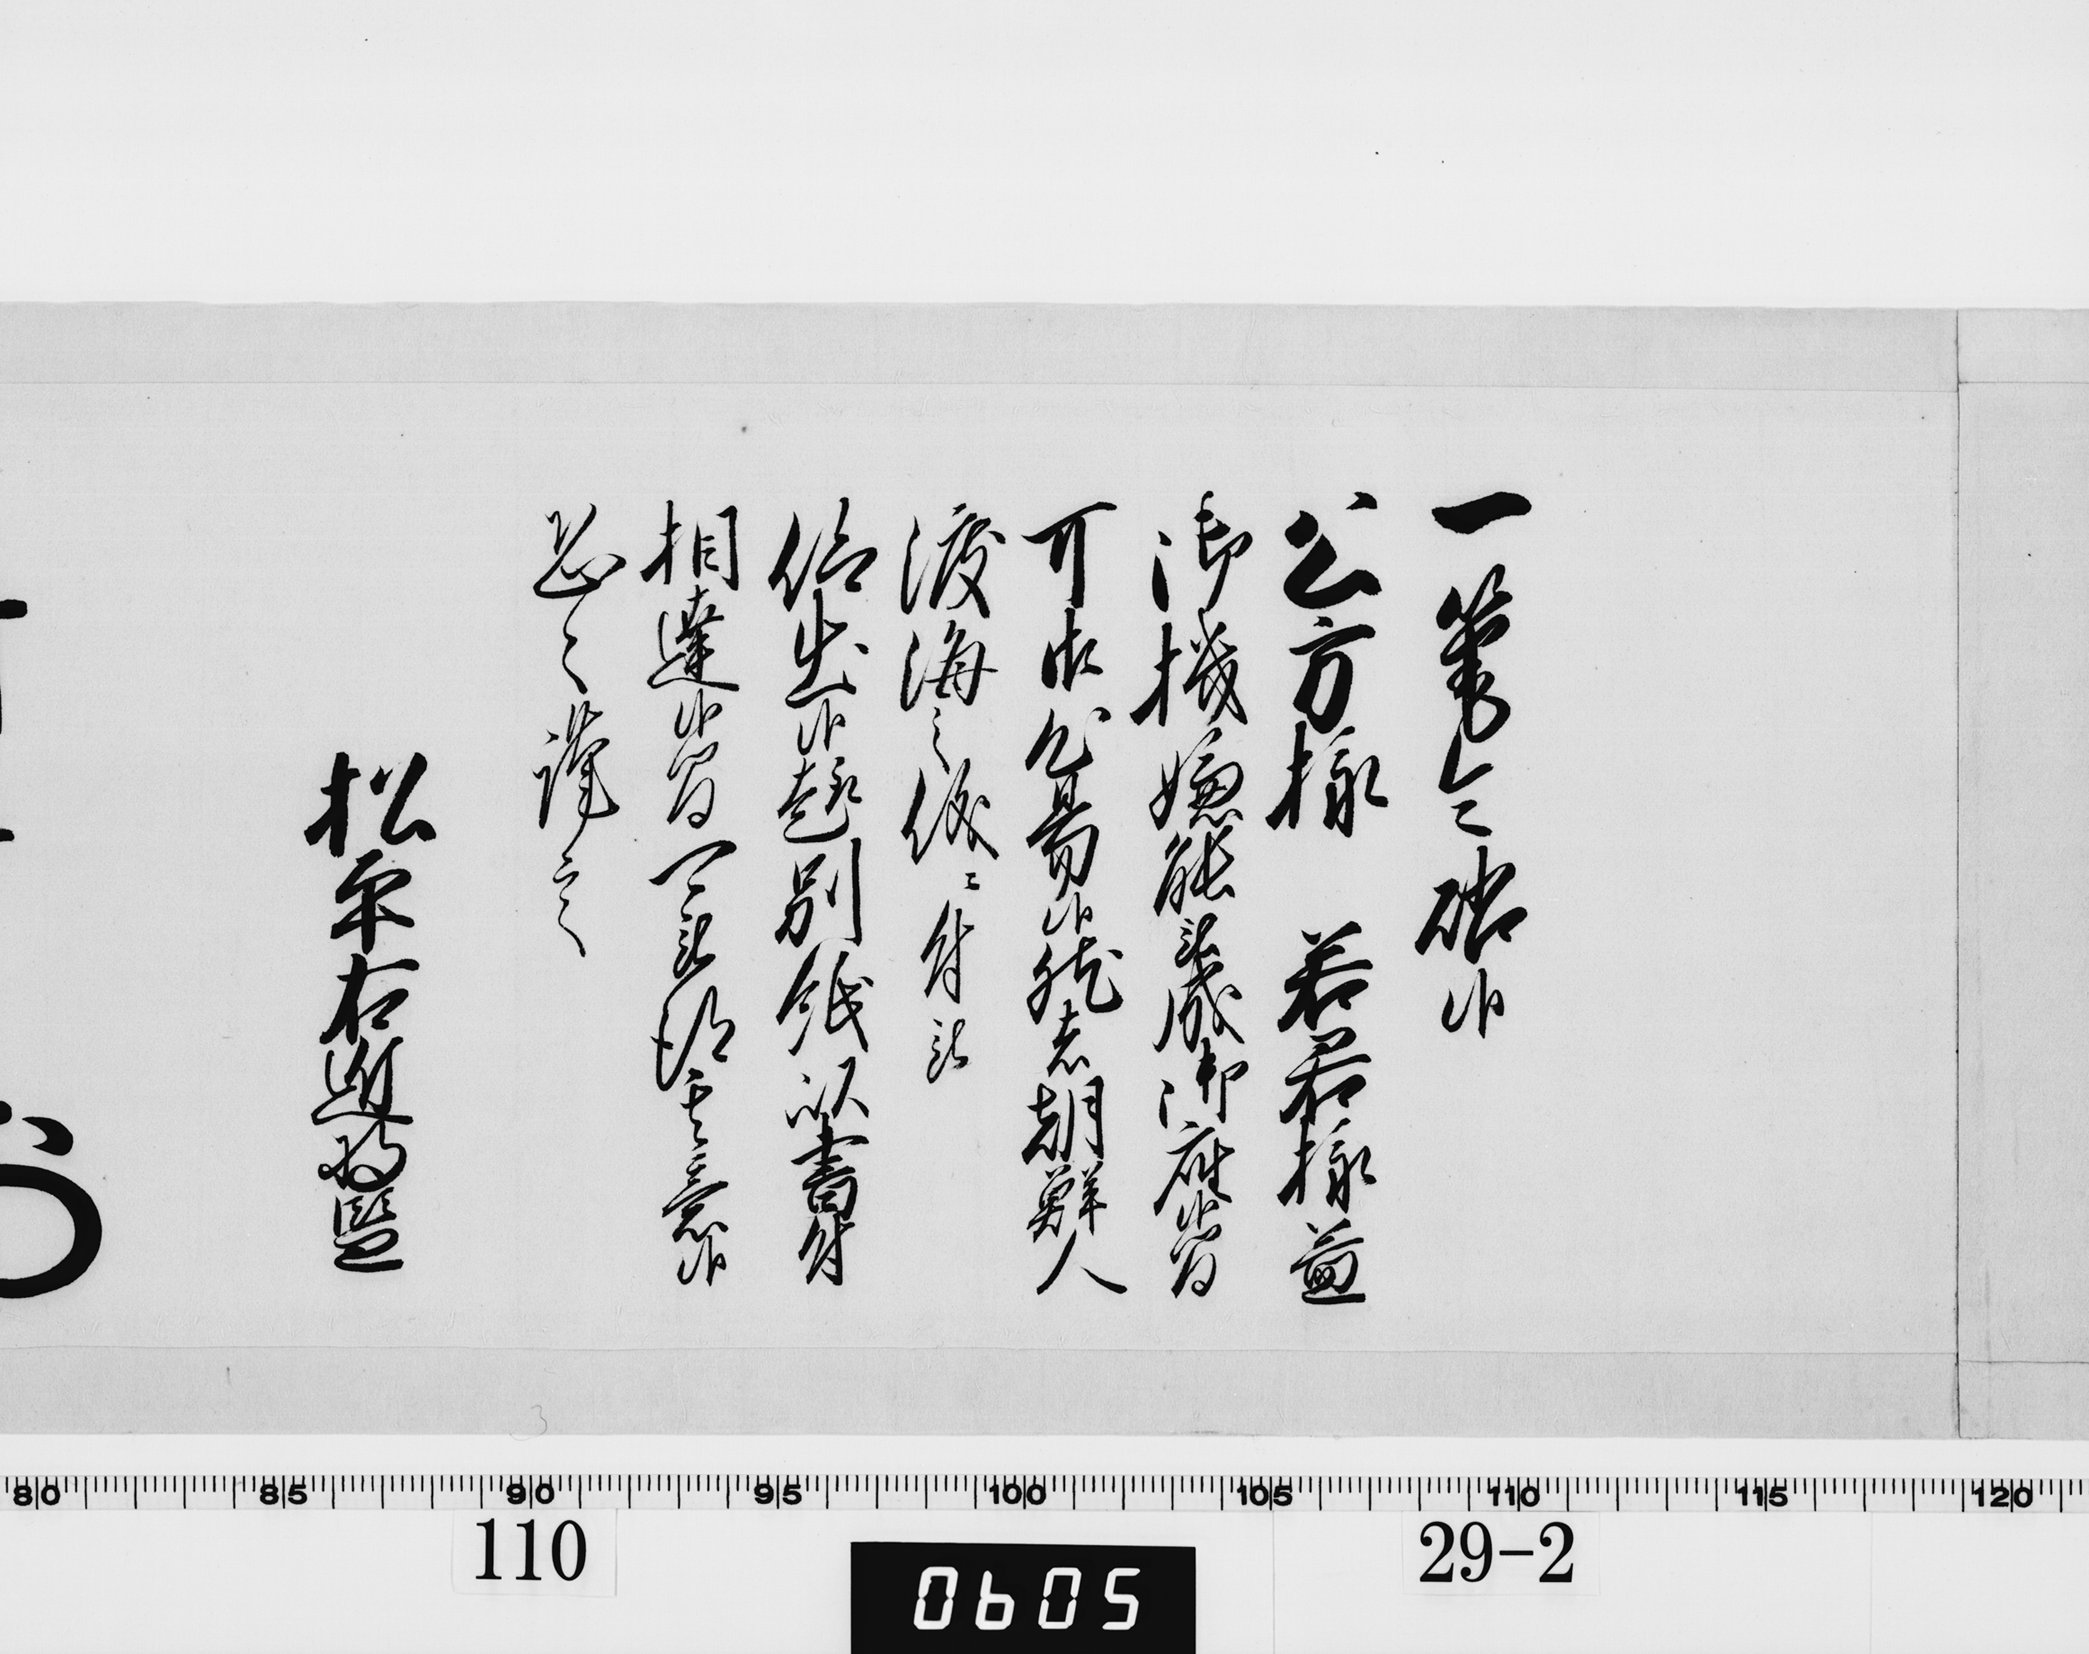 一筆令啓候
公方様 若君様益
御機嫌能被成御座候間
可御心易候然者朝鮮人
渡海之儀ニ付被
仰出候趣別紙以書付
相達候間可被得其意候
恐々謹言
松平右近将監
80 85 90 95 100 105 110 115 120
110
29-2
0605